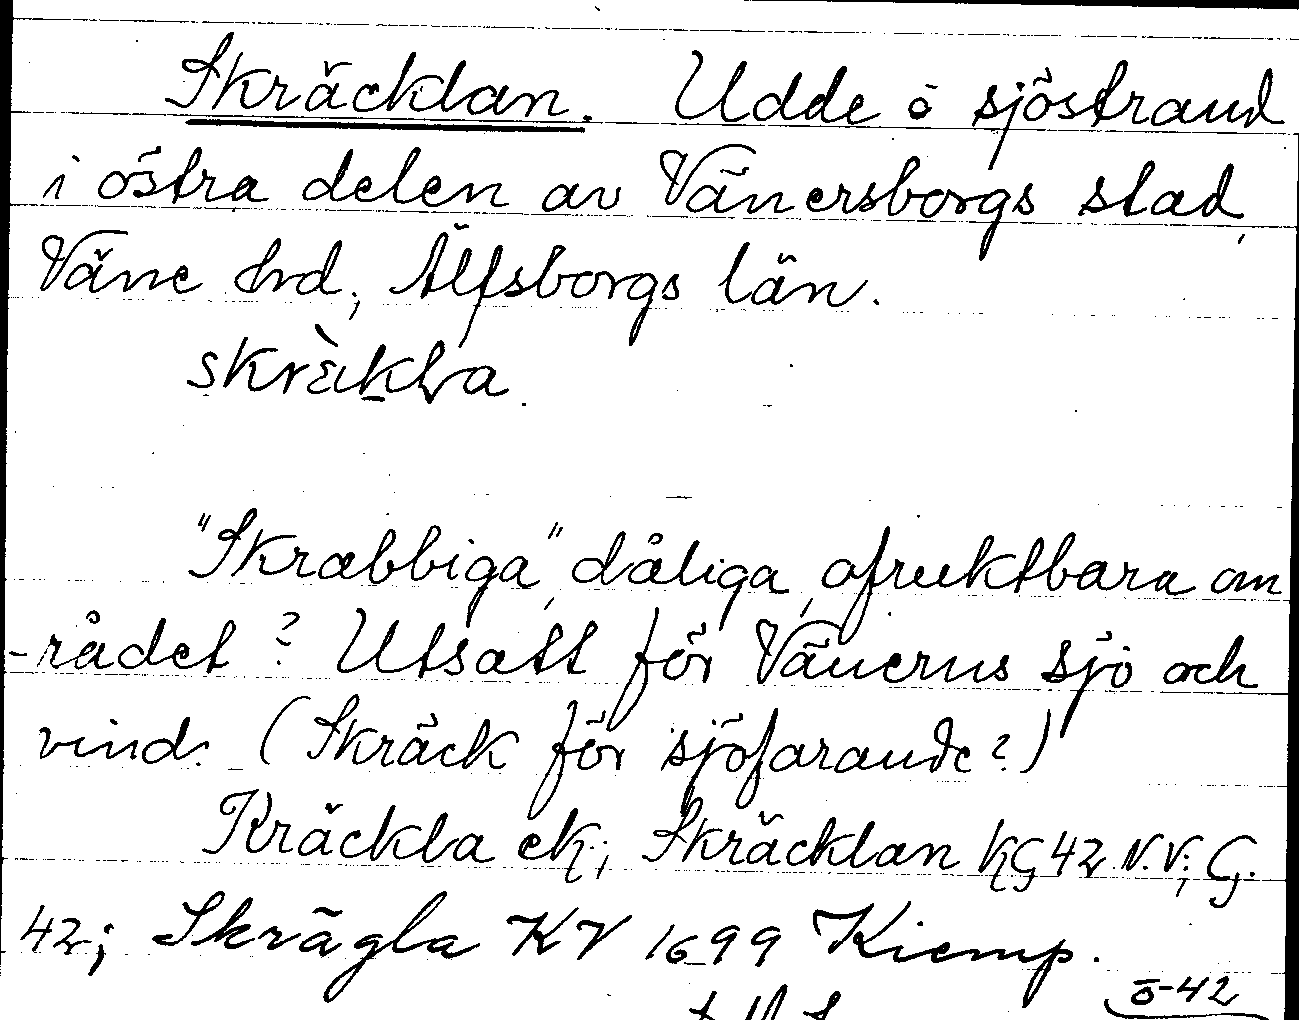 Skräcklan. Udde o sjöstrand
i östra delen av Vänersborgs stad,
Väne hd, Älfsborgs län.
"Skrabbiga", dåliga, ofruktbara om
-rådet? Utsatt för Vänerns sjö och
vind. (Skräck för sjöfarande?)
Kräckla ek; Skräcklan KG 42 N.V; G.
42; Skrägla KV 1699 Kiemp.
ö-42